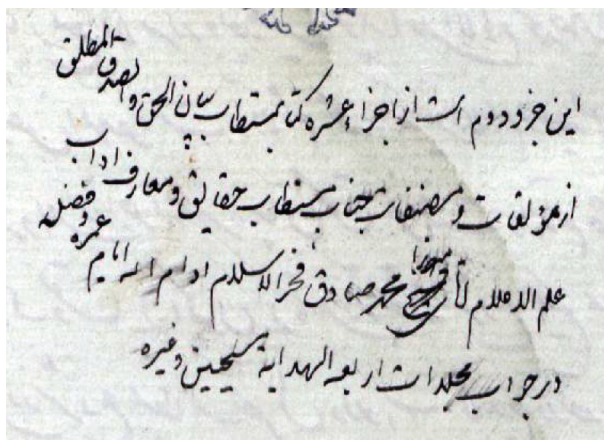 این جزو دوم است از اجزاء عشره کتاب مستطاب بیان الحق والصدق المطلق
از مؤلفات و مصنفات جناب مستطاب حقایق و معارف اداب
علم الاعلام میرزا محمد صادق فخر الاسلام ادام الله ایام عمره و فضله
در جواب مجلدات اربعه الهدایة مسیحیین و غیره